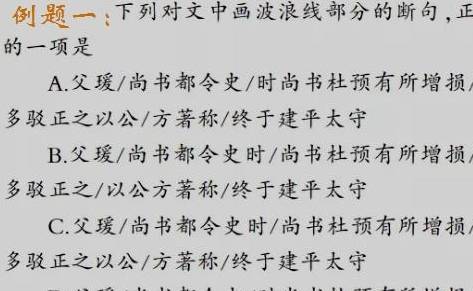 例题一:下列对文中画波浪线部分的断句,正
的一项是
A.父瑗/尚书都令史/时尚书杜预有所增损/
多驳正之以公/方著称/终于建平太守
B.父瑗/尚书都令史时/尚书杜预有所增损/
多驳正之/以公方著称/终于建平太守
C.父瑗/尚书都令史时/尚书杜预有所增损/
多驳正之以公/方著称/终于建平太守